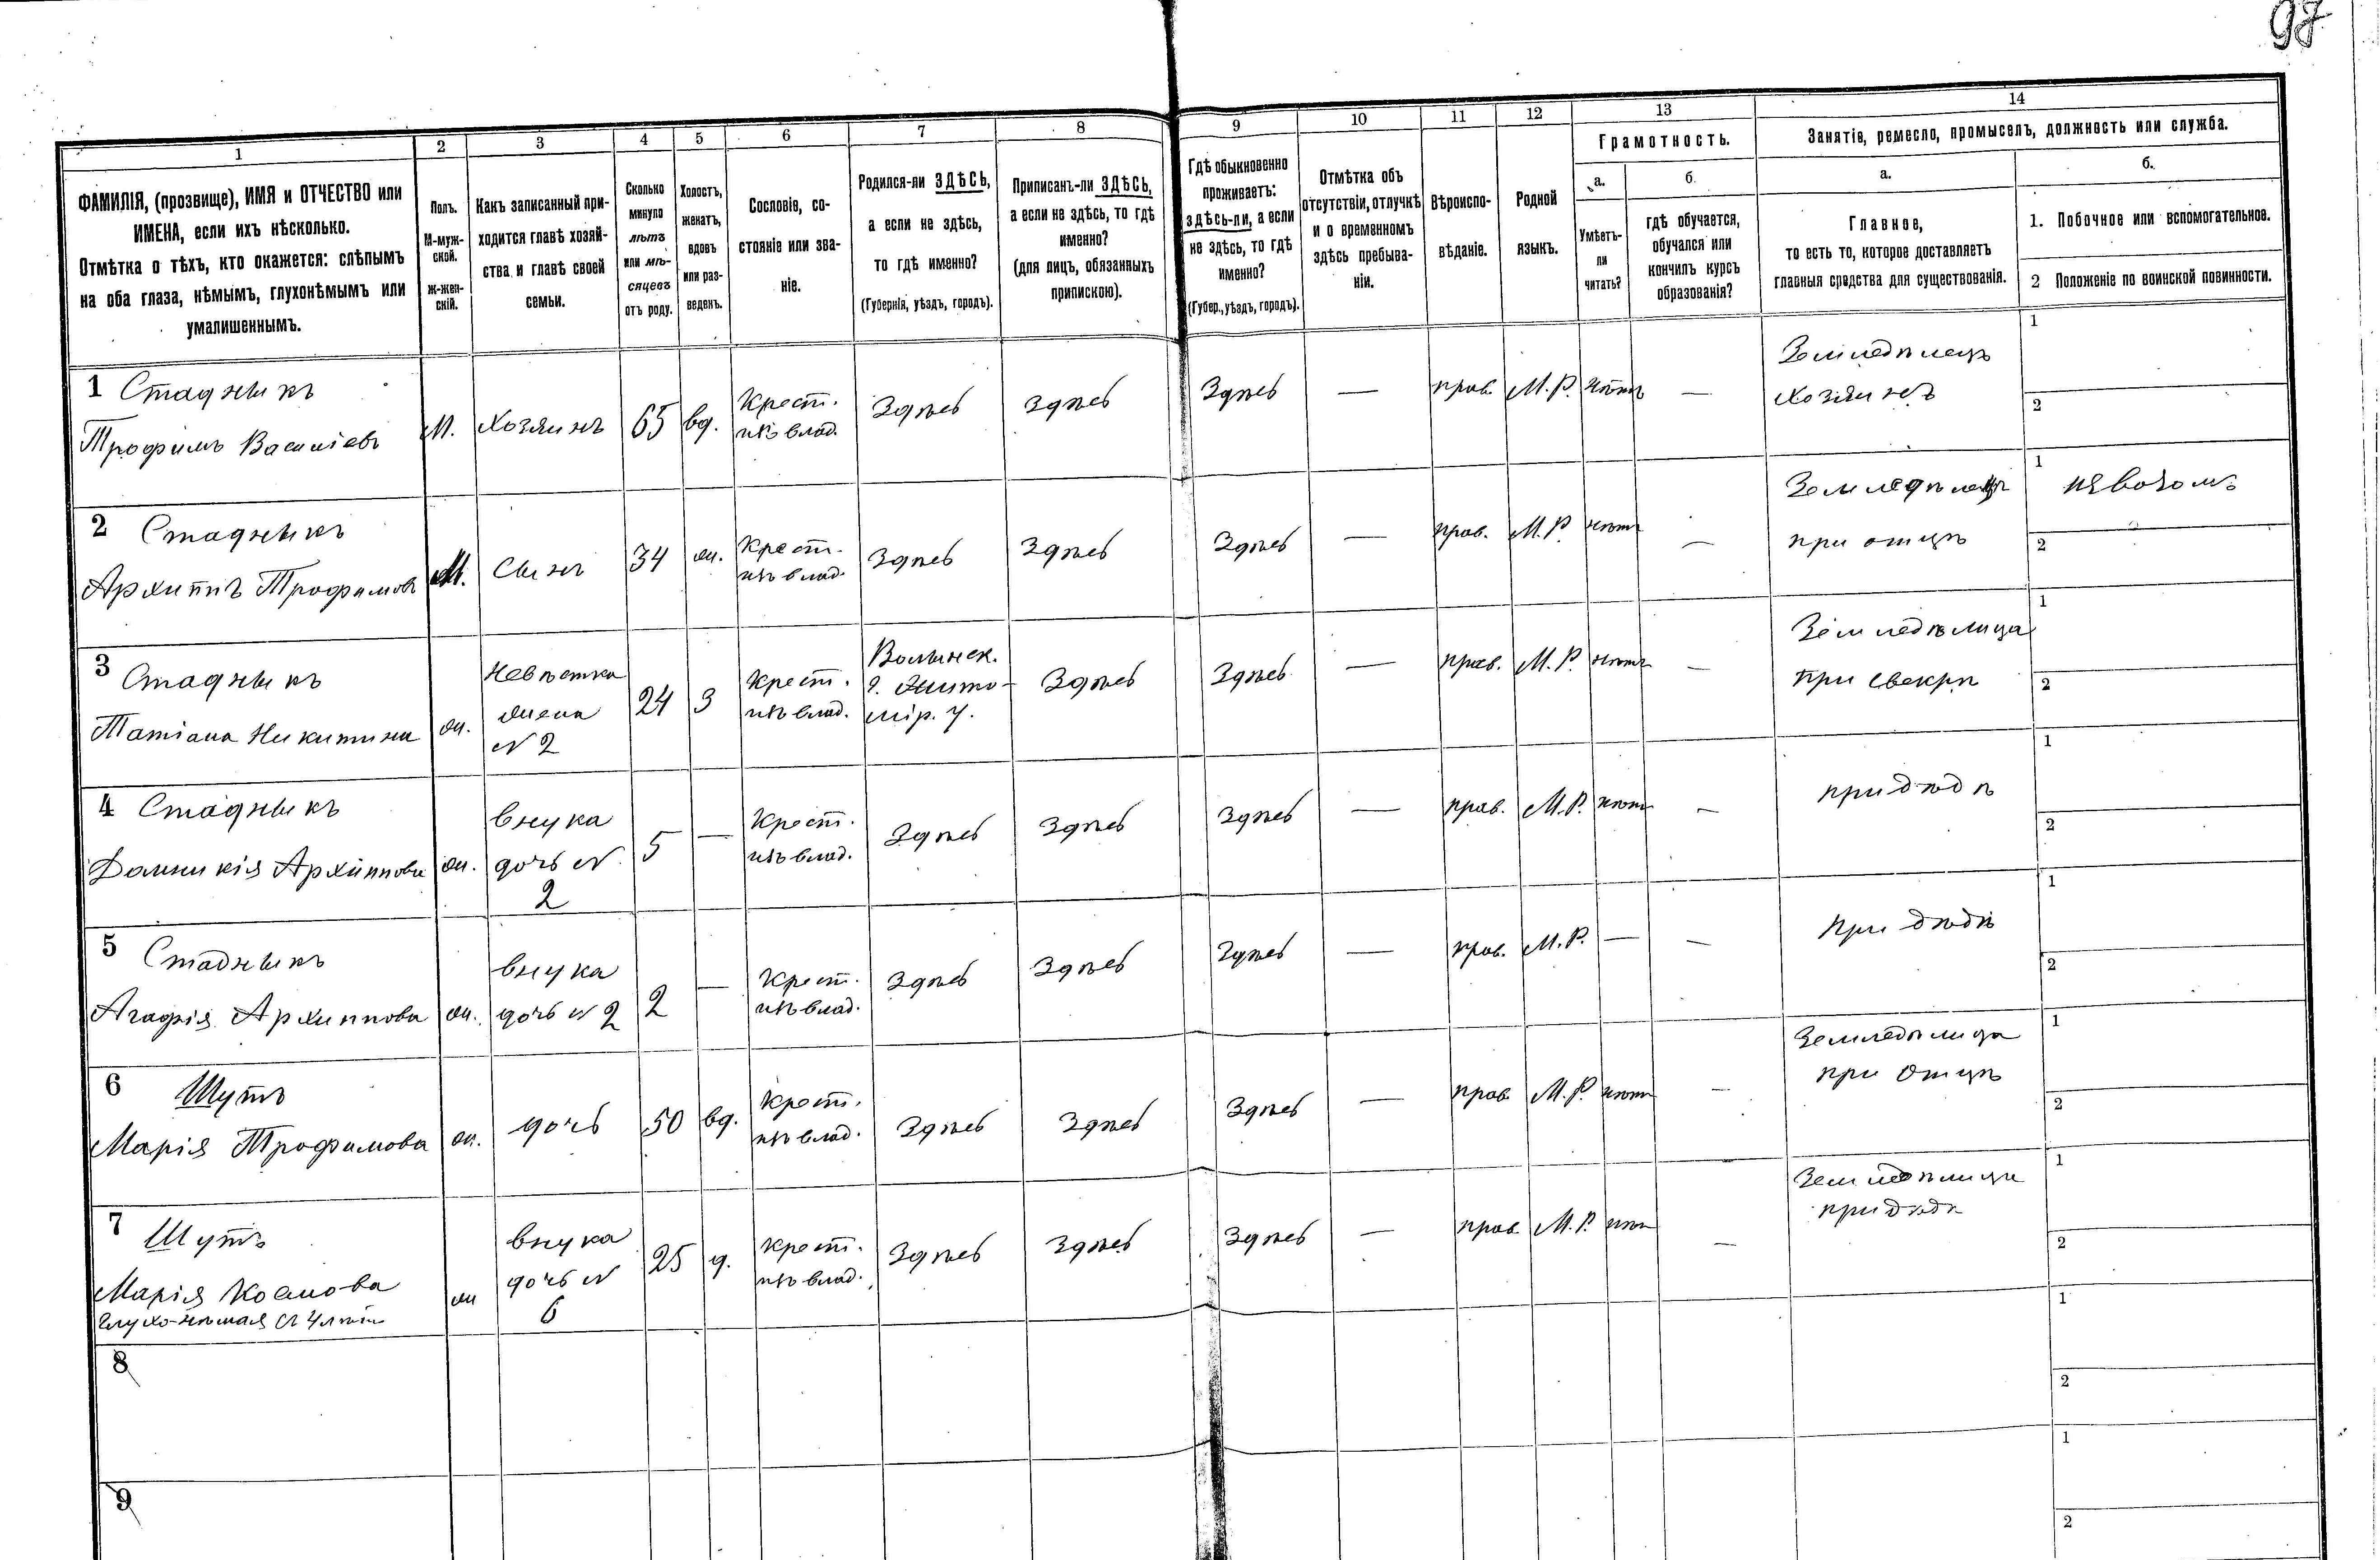 97
1
2
3
4
5
6
7
8
9
10
11
12
13
14
ФАМИЛІЯ, (прозвище), ИМЯ и ОТЧЕСТВО или
ИМЕНА, если ихъ нѣсколько.
Отмѣтка о тѣхъ, кто окажется: слѣпымъ
на оба глаза, нѣмымъ, глухонѣмымъ или
умалишеннымъ.
Полъ.
М-муж-
ской.
ж-жен-
скій.
Какъ записанный при-
ходится главѣ хозяй-
ства и главѣ своей
семьи.
Сколько
минуло
лѣтъ
или мѣ-
сяцевъ
отъ роду.
Холостъ,
женатъ,
вдовъ
или раз-
веденъ.
Сословіе, со-
стояніе или зва-
ніе.
Родился-ли ЗДѢСЬ,
а если не здѣсь,
то гдѣ именно?
(Губернія, уѣздъ, городъ).
Приписанъ-ли ЗДѢСЬ,
а если не здѣсь, то гдѣ
именно?
(для лицъ, обязанныхъ
припискою).
Гдѣ обыкновенно
проживаетъ:
здѣсь-ли, а если
не здѣсь, то гдѣ
именно?
(Губер., уѣздъ, городъ).
Отмѣтка объ
отсутствіи, отлучкѣ
и о временномъ
здѣсь пребыва-
ніи.
Вѣроиспо-
вѣданіе.
Родной
языкъ.
Грамотность.
а.
Умѣетъ-
ли
читать?
б.
гдѣ обучается,
обучался или
кончилъ курсъ
образованія?
Занятіе, ремесло, промыселъ, должность или служба.
а.
Главное,
то есть то, которое доставляетъ
главныя средства для существованія.
б.
1. Побочное или вспомогательное.
2 Положеніе по воинской повинности.
1 Стадныкъ
Трофимъ Василіевъ
М.
Хозяинъ
65
вд.
Крест.
изъ влад.
Здѣсь
Здѣсь
Здѣсь
—
прав.
М.Р.
нѣтъ
—
Земледѣлецъ
Хозяинъ
1
2
2 Стадныкъ
Архиппъ Трофимовъ
М.
Сынъ
34
ж.
Крест.
изъ влад.
Здѣсь
Здѣсь
Здѣсь
—
прав.
М.Р.
нѣтъ
—
Земледѣлецъ
при отцѣ
1 извозомъ
2
3 Стадныкъ
Татіана Никитина
ж.
Невѣстка
жена
N 2
24
З
Крест.
изъ влад.
Волынск.
г. Жито-
мір. у.
Здѣсь
Здѣсь
—
прав.
М.Р.
нѣтъ
—
Земледѣлица
при свекрѣ
1
2
4 Стадныкъ
Домникія Архиппова
ж.
внука
дочь N
2
5
—
Крест.
изъ влад.
Здѣсь
Здѣсь
Здѣсь
—
прав.
М.Р.
нѣтъ
—
при дѣдѣ
1
2
5 Стадныкъ
Агафія Архиппова
ж.
внука
дочь N 2
2
—
Крест.
изъ влад.
Здѣсь
Здѣсь
Здѣсь
—
прав.
М.Р.
—
—
при дѣдѣ
1
2
6 Шутъ
Марія Трофимова
ж.
дочь
50
вд.
Крест.
изъ влад.
Здѣсь
Здѣсь
Здѣсь
—
прав.
М.Р.
нѣтъ
—
Земледѣлица
при отцѣ
1
2
7 Шутъ
Марія Космова
Глухо-нѣмая съ 4 лѣтъ
ж
внука
дочь N
6
25
д.
Крест.
изъ влад.
Здѣсь
Здѣсь
Здѣсь
—
прав
М.Р.
нѣтъ
—
Земледѣлица
при дѣдѣ
1
2
8
1
2
9
1
2